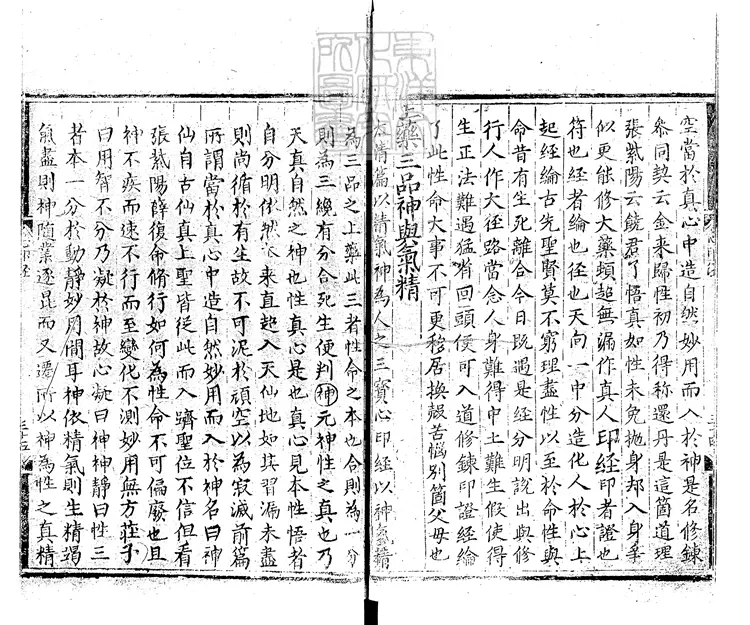 空當於真心中造自然妙用而入於神是名修鍊
叅同契云金来歸性初乃得称還丹是這箇道理
張紫陽云饒君了悟真如性未免抛身却入身爭
似更能修大藥頓超無漏作真人印経印者證也
符也経者綸也径也天向一中分造化人於心上
起経綸古先聖賢莫不窮理盡性以至於命性與
命昔有生死離合今日既遇是経分明說出與修
行人作大徑路當念人身難得中土難生假使得
生正法難遇猛将回頭便可入道修鍊印證経綸
了此性命大事不可更移居換殼苦惱別箇父母也
上藥三品神與氣精
精篇以精氣神為人之三寳心印経以神氣精
為三品之上藥此三者性命之本也合則為一分
則為三纔有分合死生便判神元神性之真也乃
天真自然之神也性真心是也真心見本性悟者
自分明依然来直超入天仙地如其習漏未盡
則尚循於有生故不可泥於頑空以為寂滅前篇
所謂當於真心中造自然妙用而入於神名曰神
仙自古仙真上聖皆従此而入躋聖位不信但看
張紫陽薛復命脩行如何為性命不可偏廢也且
神不疾而速不行而至變化不測妙用無方莊子
曰用智不分乃凝於神故心凝曰神神静曰性三
者本一分於動靜妙用間耳神依精氣則生精竭
氣盡則神随業逐昆而又遷所以神為性之真精